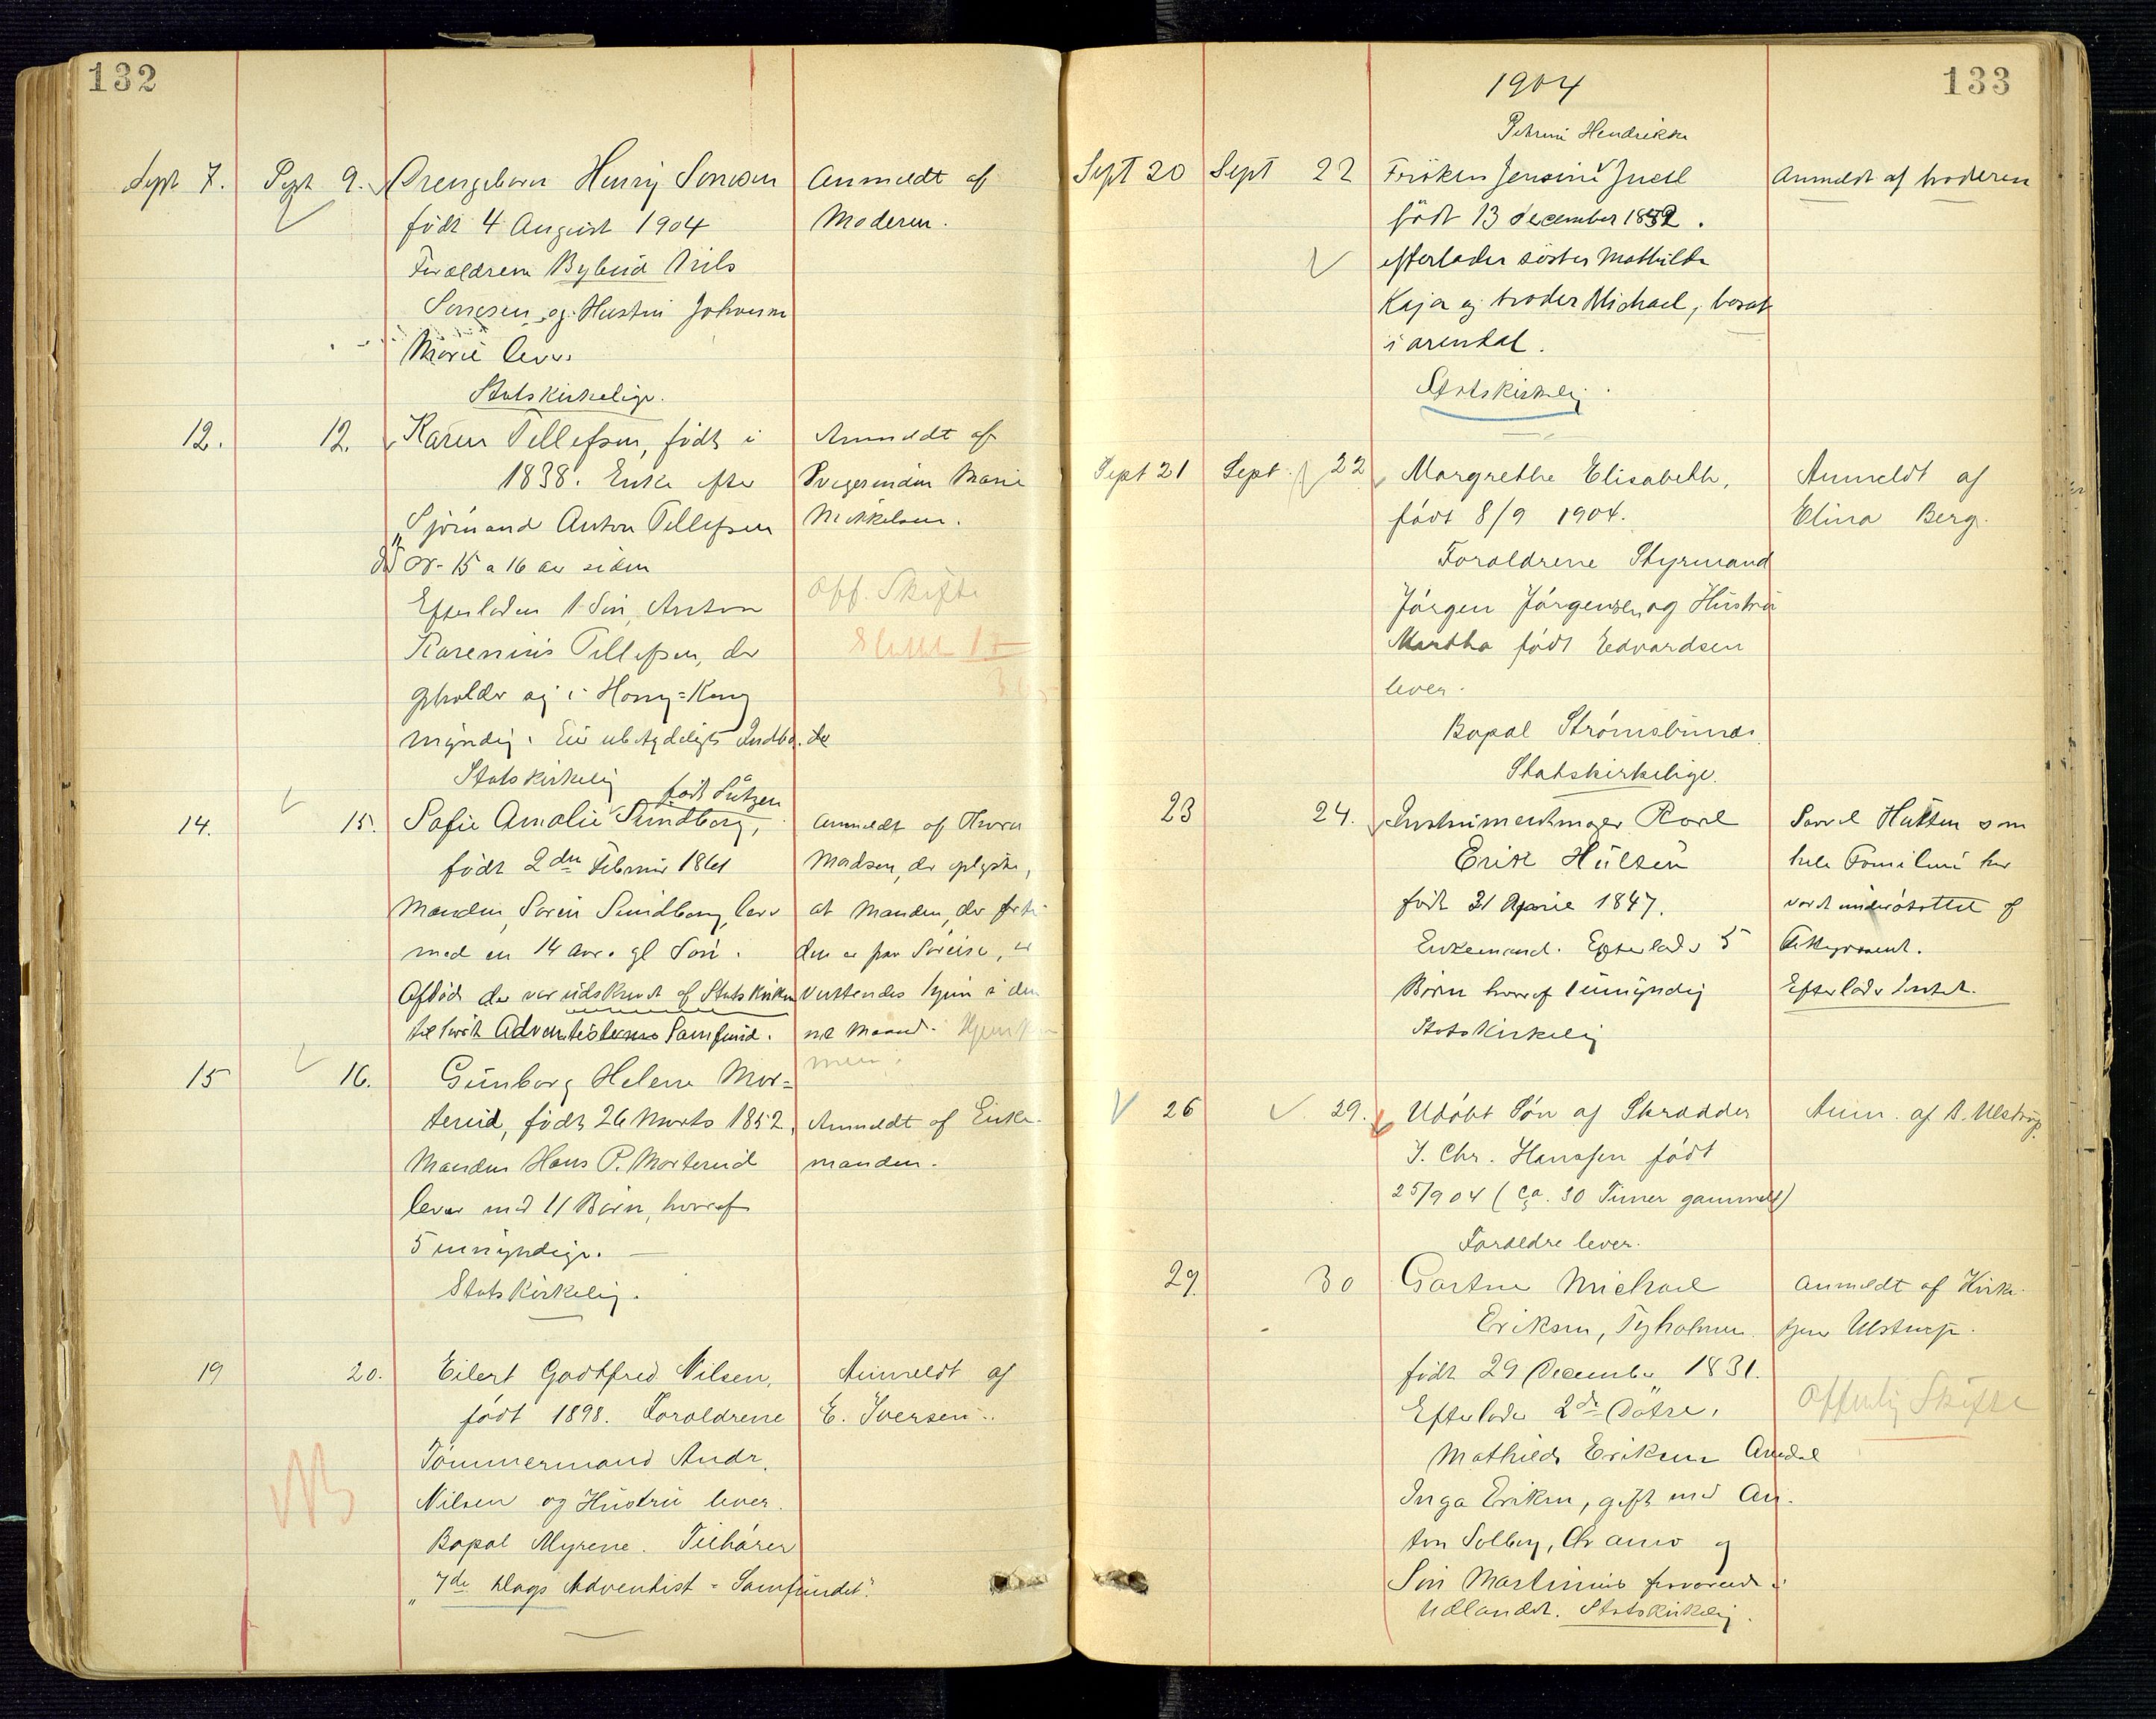 132
Sept 7. Sept 9. Drengebarn Henry Sørensen Anmeldt af
født 4 August 1904 Moderen.
Forældrene Bybud Nils
og Hustru Johanne
Marie lever
Statskirkelige.
12. 12. Karen Tellefsen, født i Anmeldt af
1838. Enke efter Svigerinden Marie
Sjømand Anton Tellefsen Mikkelsen.
død for 15 a 16 aar siden
Efterlader 1 Søn, Anton Off. Skifte
Karenius Tellefsen, der
opholder sig i Hong=Kong
myndig. Eier ubetydeligt Indbo.
Statskirkelig
født Lützen
14. 15. Sofie Amalie Sundborg, Anmeldt af Thora
født 2den Februar 1861 Madsen, der oplyste,
Manden, Søren Sundborg lever at Manden, der for ti
med en 14 Aar gl Søn. den er paa Søreise,
Afdøde der var udskrevet af Statskirken ventendes hjem i den
tilhørte Adventisternes Samfund. næ Maaned.
15 16. Gunborg Helene Mor=
terud, født 26 Marts 1852, Anmeldt af Enke-
Manden Hans P. Morterud manden.
lever med 11 Børn, hvoraf
5 umyndige.
Statskirkelig.
19 20. Eilert Godtfred Nilsen, Anmeldt af
født 1898. Forældrene E. Iversen.
Tømmermand Andr.
NB Nilsen og Hustru lever.
Bopæl Myrene. Tilhører
"7de dags Adventist-Samfundet".
1904 133
Petrine Hendrikke
Sept 20 Sept 22 Frøken Jensine Juell Anmeldt af broderen
født 13 december 1832.
efterlader søster Mathilde
Kaja og broder Michael, bosat
i arendal.
Statskirkelig
Sept 21 Sept. 22 Margrethe Elisabeth, Anmeldt af
født 8/9 1904. Elina Berg.
Forældrene Styrmand
Jørgen Jørgensen og Hustru
Martha født Edvardsen
lever.
Bopæl Strømsbunes
Statskirkelige.
23 24. Instrumentmager Karl
Erik Hültzen hele Familien har
født 21 April 1847. vært understøttet af
Enkemand. Efterlader 5
Børn hvoraf 1 umyndig Efterlader Intet.
Statskirkelig
26 29. Udøbt Søn af Skrædder Anm. af A. Ulstrup.
J. Chr. Hansen født
25/9 04 (ca. 30 Timer gammel)
Forældre lever.
29. 30 Gartner Michael Anmeldt af Kirke-
Eriksen, Tyholmen. tjener Ulstrup.
født 29 December 1831.
Efterlader 2de Døtre, Offentlig Skifte
Mathilde Eriksen Arendal
Inga Eriksen, gift med An-
ton Solberg, Chr ania og
Søn Martinius fraværende i
Udlandet. Statskirkelig.